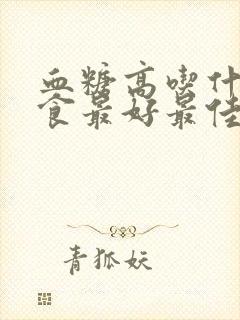 血糖高喫什
食最好最佳
青狐妖